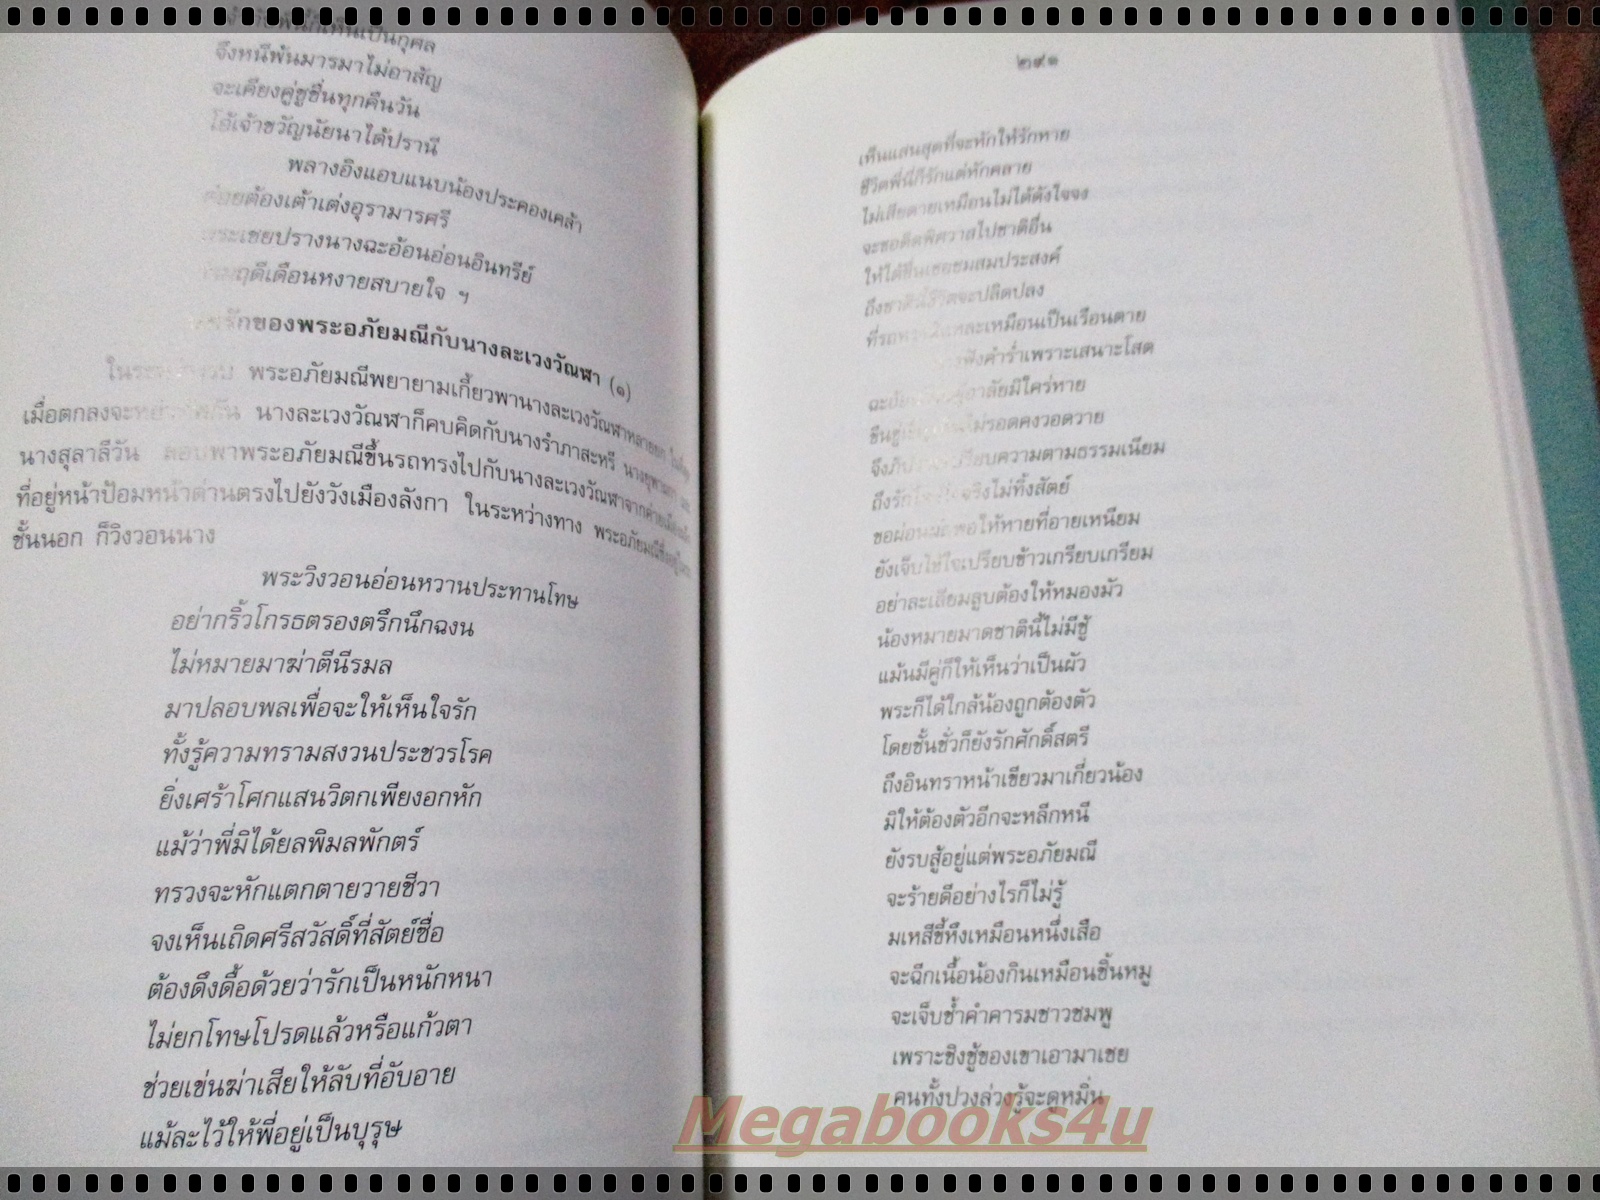 จึงหนีพ้นมารมาไม่อาสัญ
จะเคียงคู่ชูชื่นทุกคืนวัน
โอ้เจ้าขวัญนัยนาได้ปรานี
พลางอิงแอบแนบน้องประคองเคล้า
ค่อยต้องเต้าเต่งอุรามารศรี
พระเชยปรางนางฉะอ้อนอ่อนอินทรีย์
ฤดีเดือนหงายสบายใจ ฯ
รักของพระอภัยมณีกับนางละเวงวัณฬา (๑)
พระอภัยมณีพยายามเกี้ยวพานางละเวงวัณฬาหลายยก
เมื่อตกลงจะหย่าทัพกัน นางละเวงวัณฬาก็คบคิดกับนางรำภาสะหรี นางยุพาผกา และ
นางสุลาลีวัน ลอบพาพระอภัยมณีขึ้นรถทรงไปกับนางละเวงวัณฬาจากค่าย
ที่อยู่หน้าป้อมหน้าด่านตรงไปยังวังเมืองลังกา ในระหว่างทาง พระอภัยมณี
ชั้นนอก ก็วิงวอนนาง
พระวิงวอนอ่อนหวานประทานโทษ
อย่ากริ้วโกรธตรองตรึกนึกฉงน
ไม่หมายมาฆ่าตีนีรมล
มาปลอบพลเพื่อจะให้เห็นใจรัก
ทั้งรู้ความทรามสงวนประชวรโรค
ยิ่งเศร้าโศกแสนวิตกเพียงอกหัก
แม้ว่าพี่มิได้ยลพิมลพักตร์
ทรวงจะหักแตกตายวายชีวา
จงเห็นเถิดศรีสวัสดิ์ที่สัตย์ซื่อ
ต้องดึงดื้อด้วยว่ารักเป็นหนักหนา
ไม่ยกโทษโปรดแล้วหรือแก้วตา
ช่วยเข่นฆ่าเสียให้ลับที่อับอาย
แม้ละไว้ให้พี่อยู่เป็นบุรุษ
๒๙๑
เห็นแสนสุดที่จะหักให้รักหาย
ชีวิตพี่นี้ก็รักแต่หักคลาย
ไม่เสียดายเหมือนไม่ได้ดังใจจง
จะขอคิดพิศวาสไปชาติอื่น
ให้ได้ชื่นเชยชมสมประสงค์
ถึงชาตินี้ชีวิตจะปลิดปลง
เหมือนเป็นเรือนตาย
ฟังคำร่ำเพราะเสนาะโสต
อาลัยมิใคร่หาย
ไม่รอดคงวอดวาย
เปรียบความตามธรรมเนียม
จริงไม่ทิ้งสัตย์
ขอผ่อนผัดพอให้หายที่อายเหนียม
ยังเจ็บไข้ใจเปรียบข้าวเกรียบเกรียม
อย่าละเลียมลูบต้องให้หมองมัว
น้องหมายมาดชาตินี้ไม่มีชู้
แม้นมีคู่ก็ให้เห็นว่าเป็นผัว
พระก็ได้ใกล้น้องถูกต้องตัว
โดยชั้นชั่วก็ยังรักศักดิ์สตรี
ถึงอินทราหน้าเขียวมาเกี่ยวน้อง
มิให้ต้องตัวอีกจะหลีกหนี
ยังรบสู้อยู่แต่พระอภัยมณี
จะร้ายดีอย่างไรก็ไม่รู้
มเหสีขี้หึงเหมือนหนึ่งเสือ
จะฉีกเนื้อน้องกินเหมือนชิ้นหมู
จะเจ็บช้ำคำคารมชาวชมพู
เพราะชิงชู้ของเขาเอามาเชย
คนทั้งปวงล่วงรู้จะดูหมิ่น
Megabooks4u